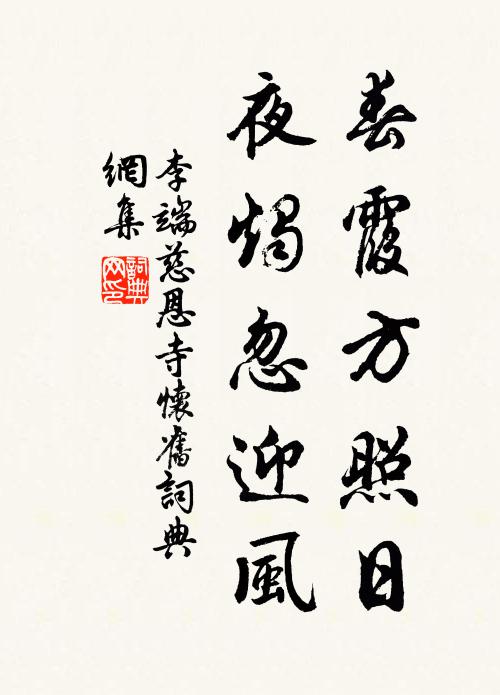 春霞方照日
夜燭忽迎風
李端慈恩寺懷舊詞典
網集
詞典
网印